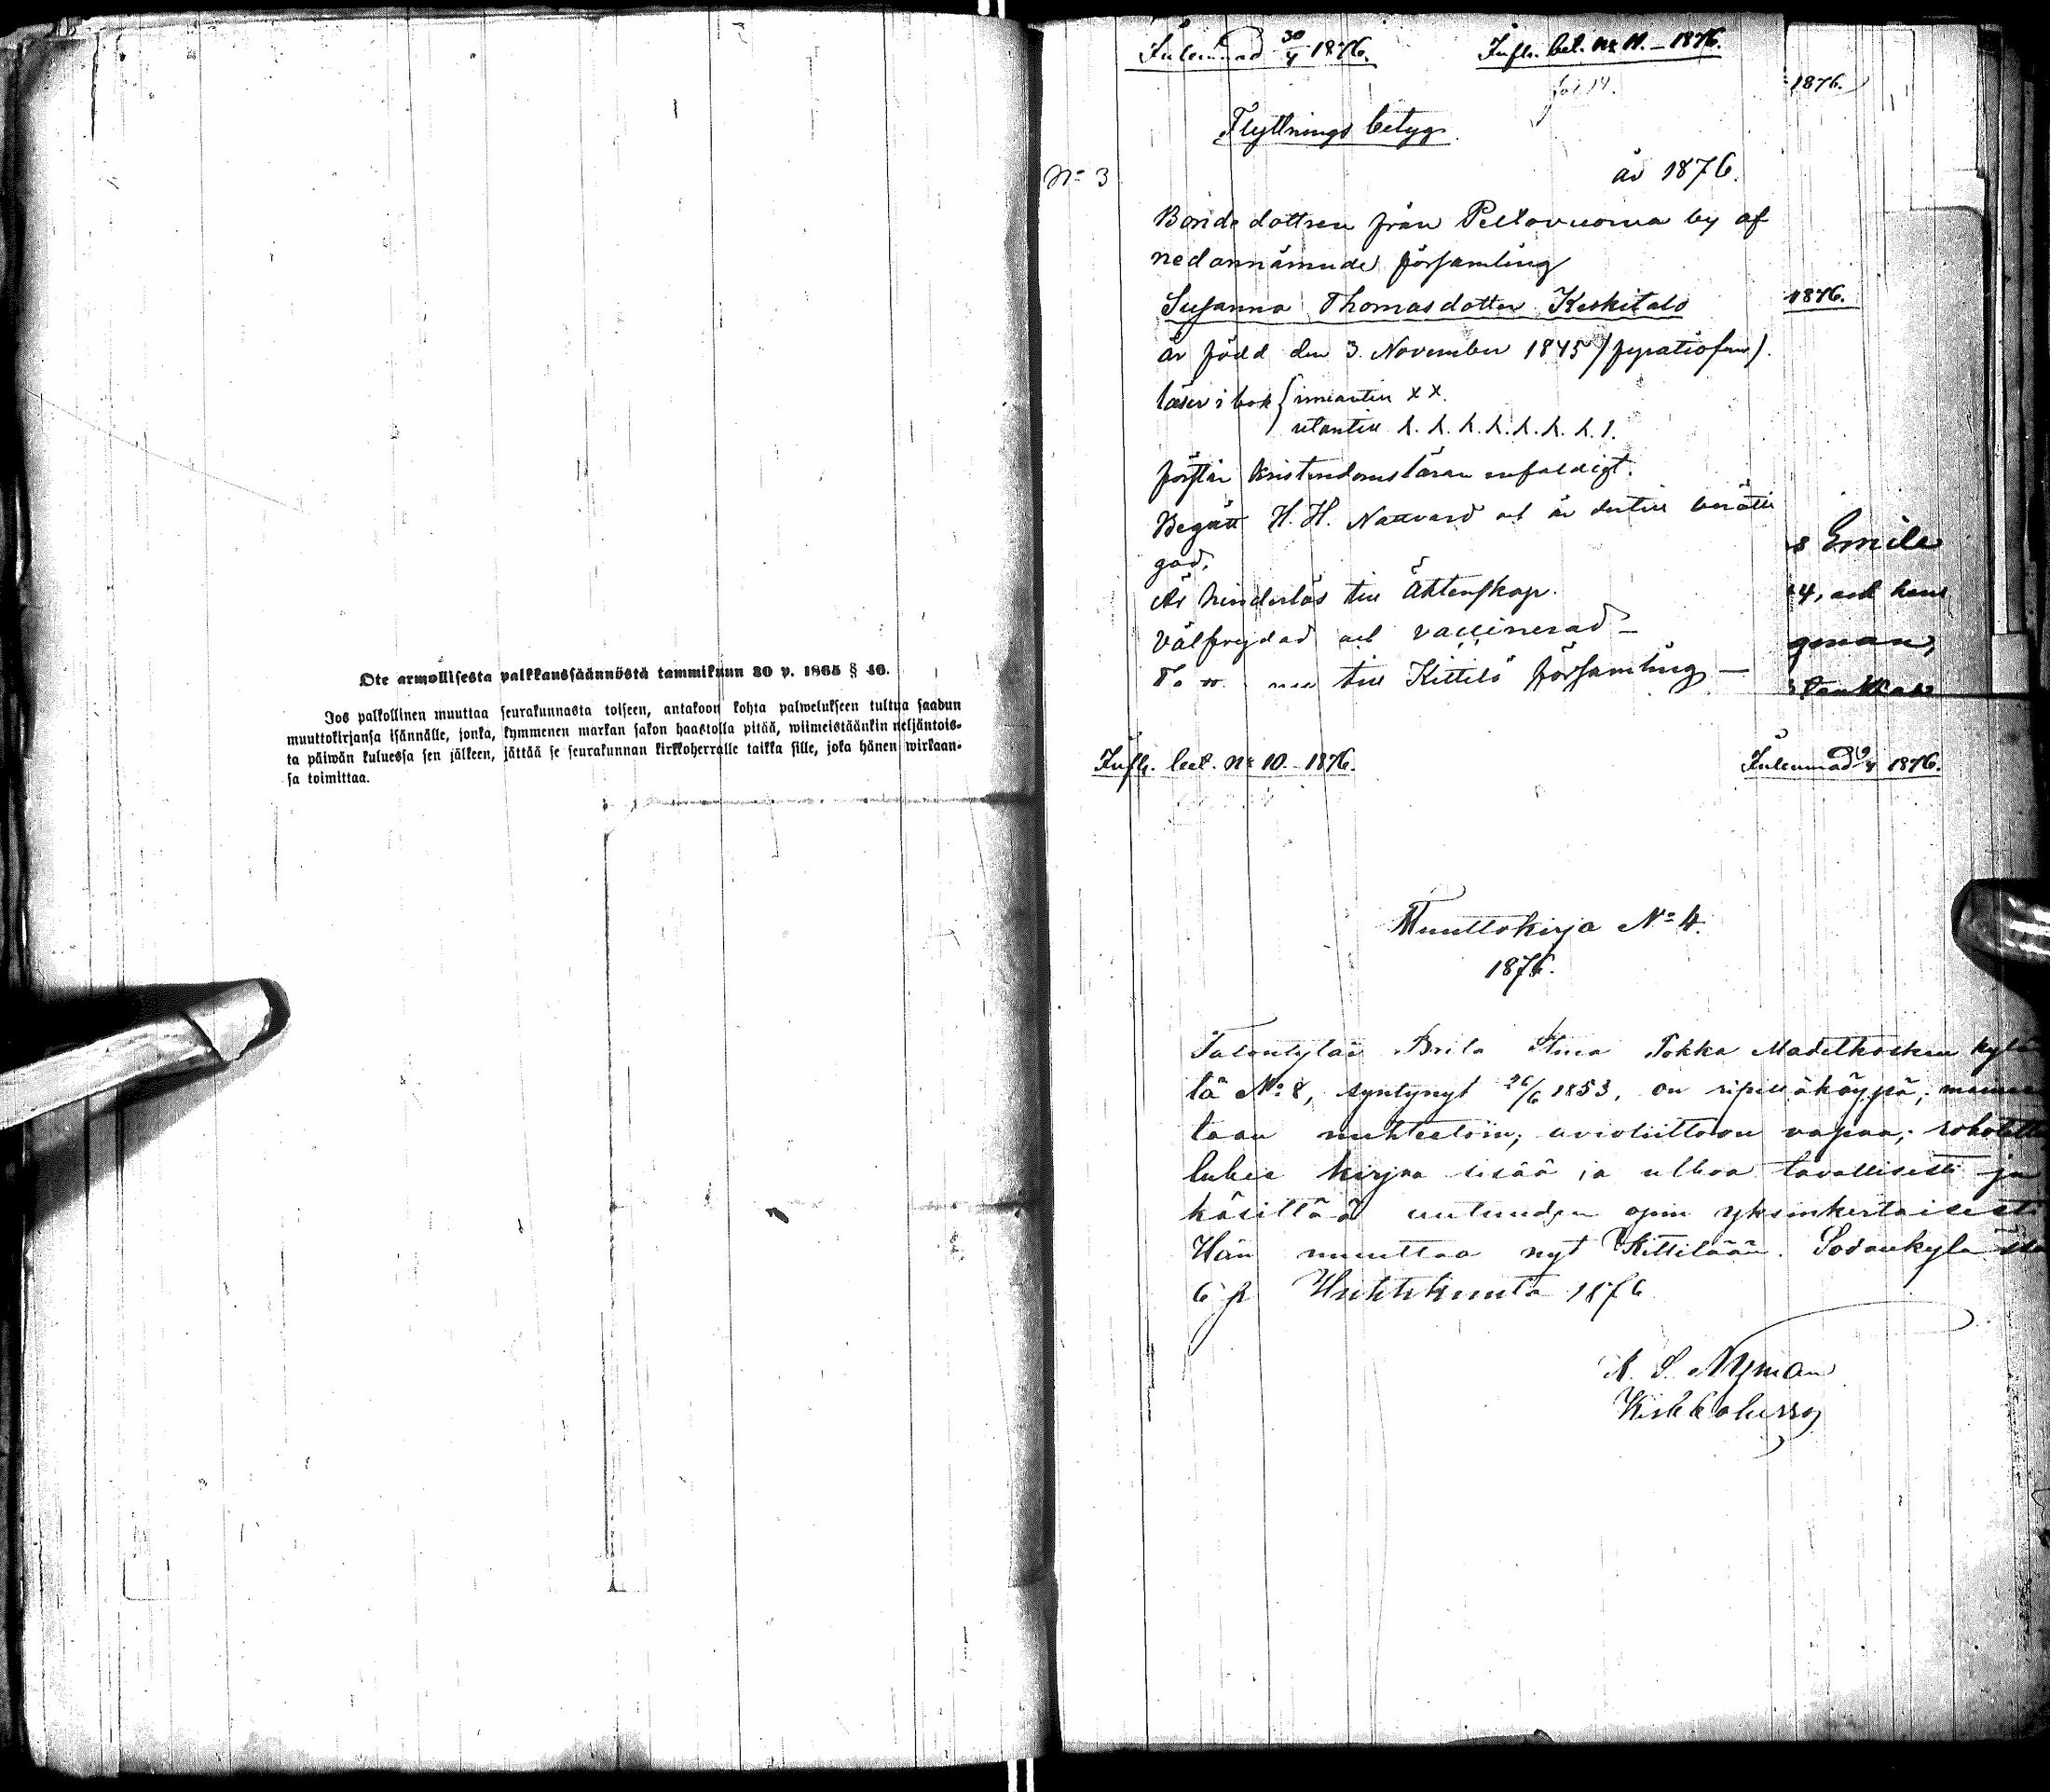 Ote armollisesta palkkaussäännöstä tammikuun 30 p. 1865 § 46.
Jos palkollinen muuttaa seurakunnasta toiseen, antakoon kohta palwelukseen tultua saadun
muuttokirjansa isännälle, jonka, kymmenen markan sakon haastolla pitää, wiimeistäänkin neljäntois-
ta päiwän kuluessa sen jälkeen, jättää se seurakunnan kirkkoherralle taikka sille, joka hänen wirkaan-
sa toimittaa.
Inlemnad 30/4 1876. Infl. bet. No 11. - 1876.
fol 14. 1876.
Flyttnings betyg.
No 3
år 1876.
Bondedottren från Peltovuoma by af
nedannämnde församling
Susanna Thomasdotter Keskitalo
1876.
är född den 3. November 1845 /fyratiofem/.
läser i bok { innantill x x.
utantill
förstår kristendomsläran enfaldigt.
Begått H. H. Nattvard och är dertill berätti
gad.
Är hinderlös till Äktenskap.
Välfrejdad och vaccinerad -
till Kittilä församling -
s Emile
4, och hans
gman,
Infl. bet. No 10. 1876.
Inlemnad 1876.
Muuttokirja No 4.
1876.
Talontytär Brita Stina Pokka Madetkosken kyläs
tä No 8, syntynyt 26/6 1853, on ripillä käypä; mainee
taan nuhteetoin; avioliittoon vapaa; rokotettu
lukee kirjaa sisää ja ulkoa tavallisesti ja
käsittää autuuden opin yksinkertaisesti
Hän muuttaa nyt Kittilään. Sodankylästä
6 p Huhtikuuta 1876
A. L. Nyman
Kirkkoherra